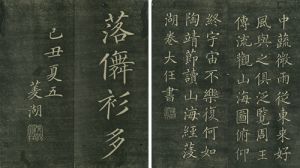 中蔬微雨從東來好
風與之俱泛覽周王
傳流觀山海圖俯仰
終宇宙不樂復何如
陶靖節讀山海經菱
湖卷大任書
落儛衫多
己丑夏五
菱湖